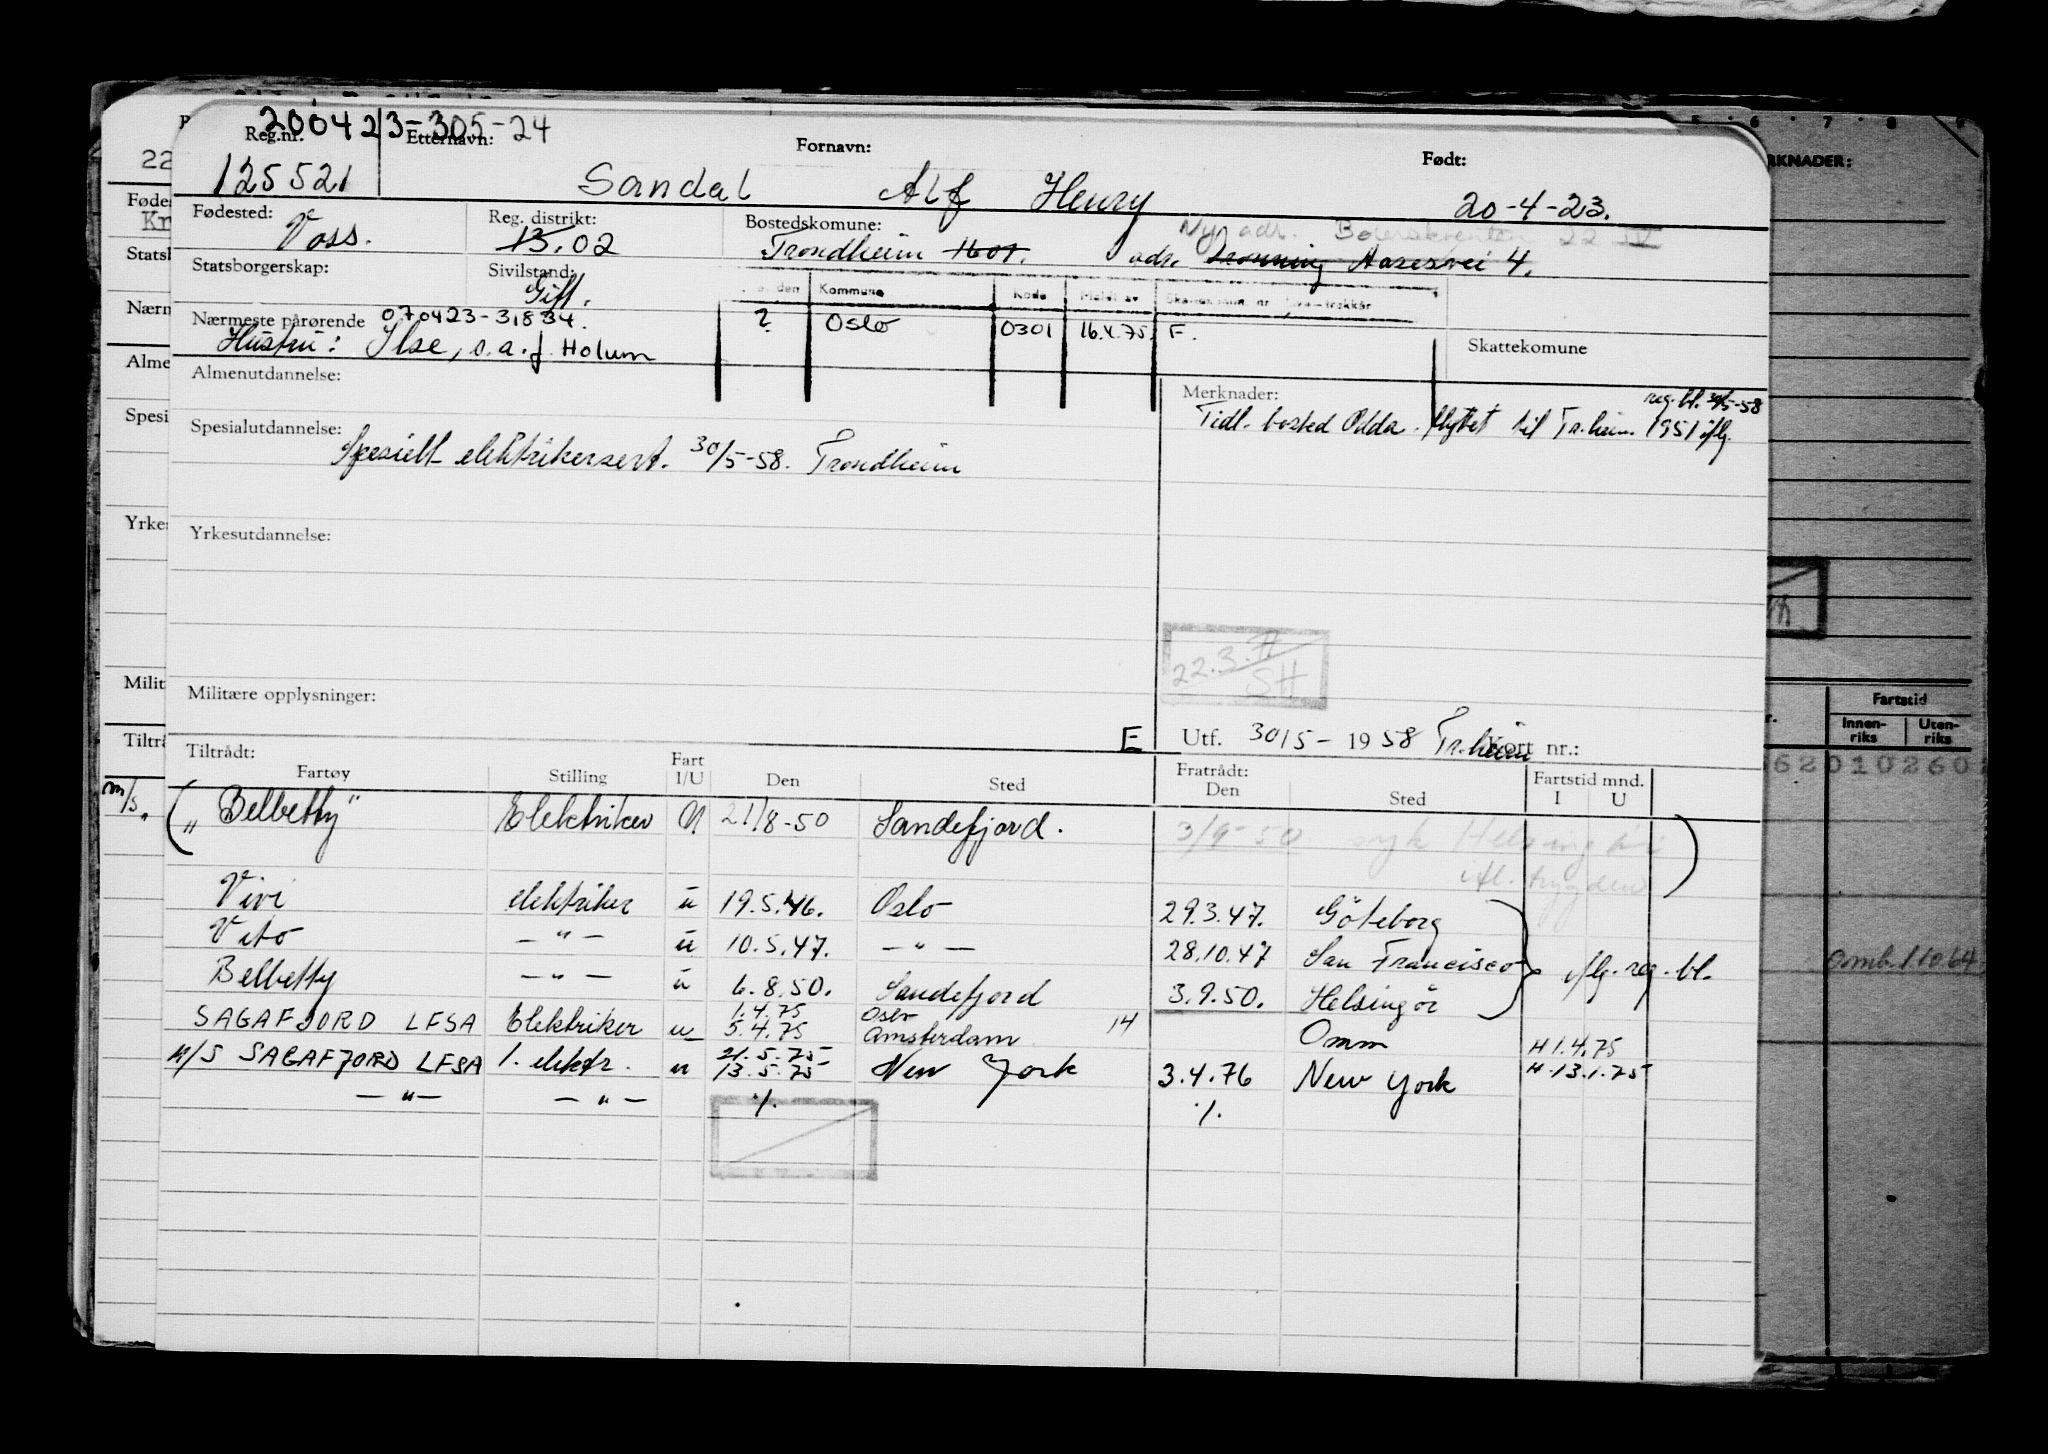 200423-305-24
Reg.nr. Etternavn: Fornavn: Født:
125521 Sandal Alf Henry 20-4-23.
Fødested: Voss. Reg. distrikt: 13.02 Bostedskomune: Trondheim 1601. Ny adr. 22
adr. Dronning Aasesvei 4.
Statsborgerskap: Sivilstand: Gift.
Kommune Kode Meldt av
Nærmeste pårørende 070423-31834. ? Oslo 0301 16.4.75. F.
Hustru: Ilse, s.a.f. Holum Skattekomune
Almenutdannelse: Merknader: reg. bl. 30/5-58
Tidl. bosted Odda. flyttet til Tr.heim 1951 iflg.
Spesialutdannelse: Spesielt elektrikersert. 30/5-58. Trondheim
Yrkesutdannelse:
22.3.77
SH
Militære opplysninger:
E Utf. 30/5 - 1958 Tr.heim Kort nr.:
Tiltrådt: Fart Fratrådt: Fartstid mnd.
Fartøy Stilling I/U Den Sted Den Sted I U
m/s. ( "Belbetty" Elektriker U 21/8-50 Sandefjord. 3/9-50 syk Helsingør )
ifl. trygden
Vivi elektriker u 19.5.46. Oslo 29.3.47. Göteborg
Vito — " — u 10.5.47. — " — 28.10.47 San Francisco iflg. reg. bl.
Belbetty — " — u 6.8.50. Sandefjord 3.9.50. Helsingör
1.4.75 Oslo
SAGAFJORD LFSA Elektriker u 5.4.75 Amsterdam 14 Omm H 1.4.75
21.5.75
M/S SAGAFJORD LFSA 1. elektr. u 13.5.75 New York 3.4.76 New York H 13.1.75
— " — — " — ./. ./.
RKNADER:
Fartstid
Innen-
riks
Uten-
riks
62010260
omb. 1 10 64
22
Føde
Kr
Statsb
Nærn
Alme
Spesi
Yrkes
Milit
Tiltrå